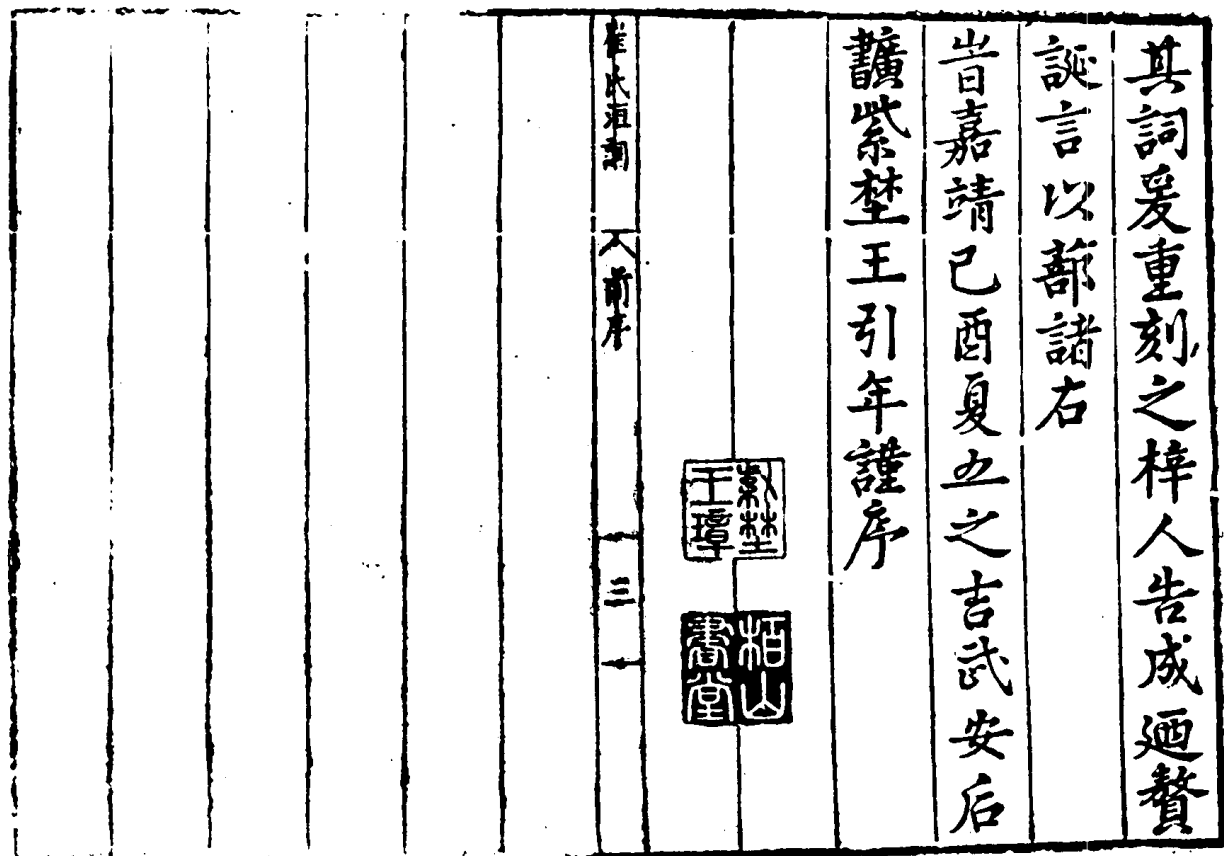 其詞爰重刻之梓人告成廼贅
誕言以蔀諸右
旹嘉靖己酉夏五之吉武安后
學紫埜王引年謹序
紫埜
王璋
栢山
書堂
崔氏洹詞 前序 三